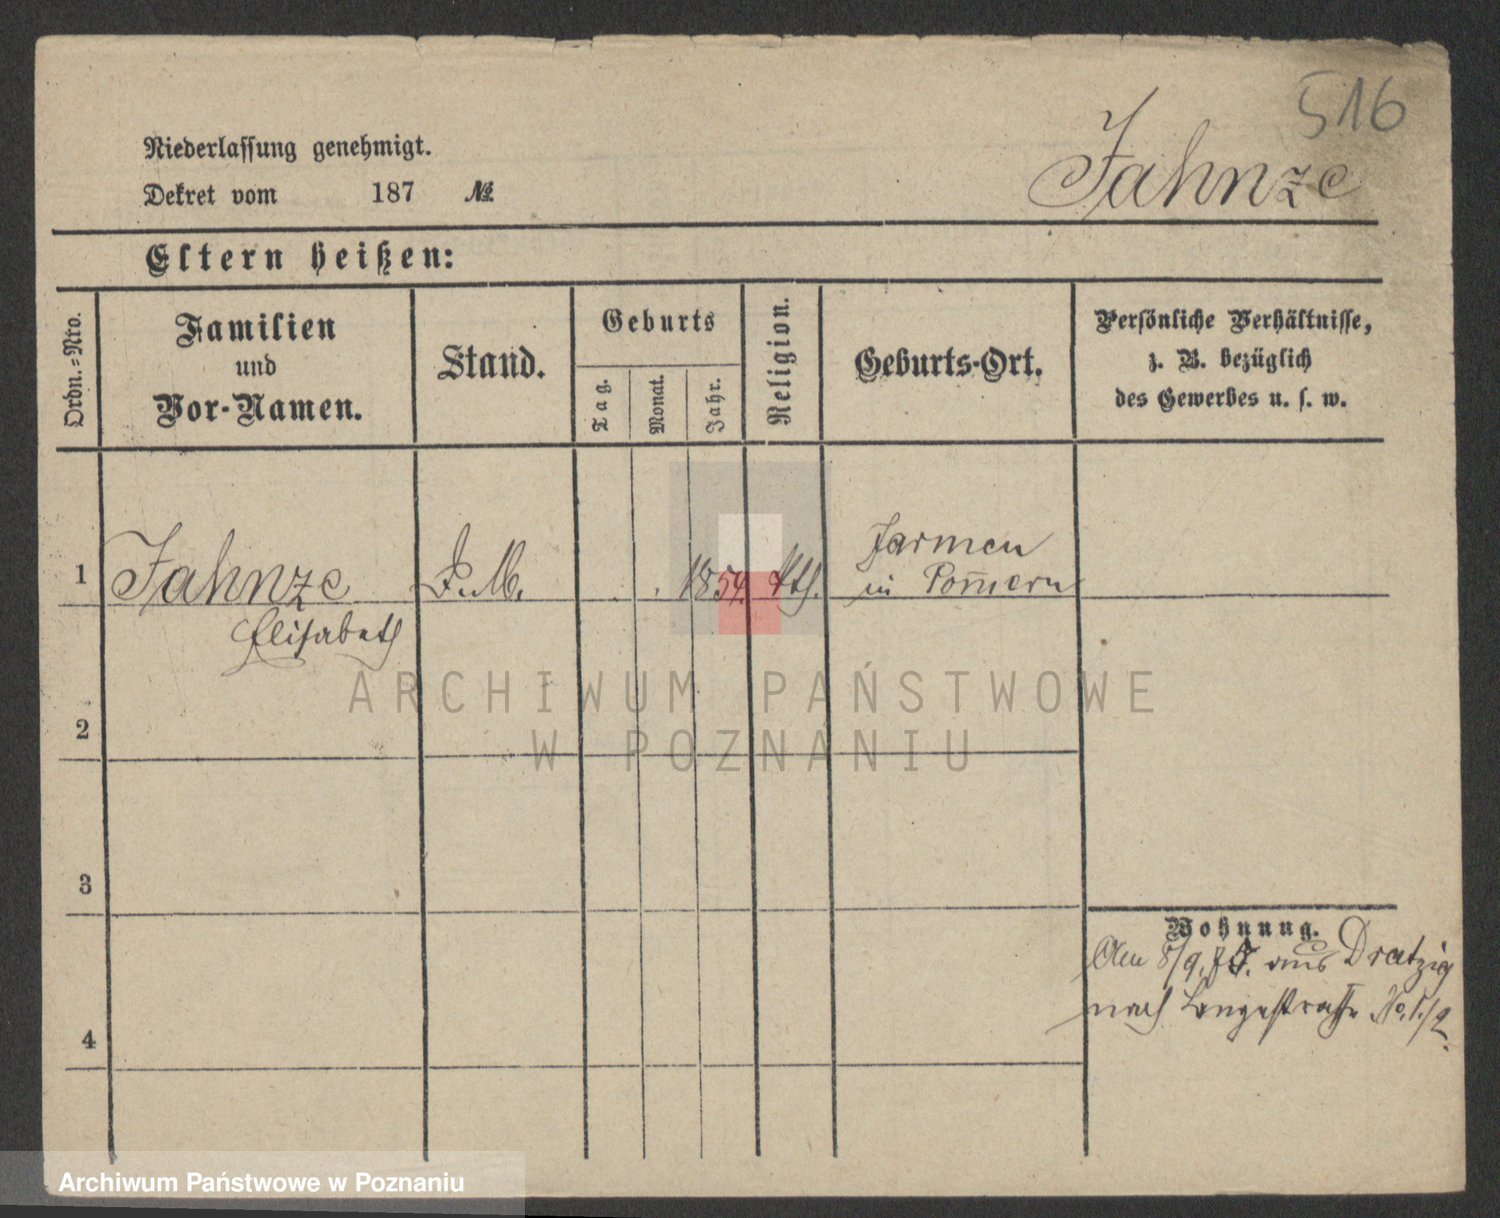 516
Niederlassung genehmigt.
Jahnze
Dekret vom 187 №
Eltern heißen:
Ordn.=Nro.
Familien
und
Vor-Namen.
Stand.
Geburts
Tag.
Monat.
Jahr.
Religion.
Geburts-Ort.
Persönliche Verhältnisse,
z. B. bezüglich
des Gewerbes u. s. w.
1 Jahnze D. M. 1854. kth. Jarmen
in Pom̅ern
Elisabeth
2
3
4
Wohnung.
Am 8/9. 75. aus Dratzig
nach Langestrasse No.
ARCHIWUM PAŃSTWOWE
W POZNANIU
Archiwum Państwowe w Poznaniu